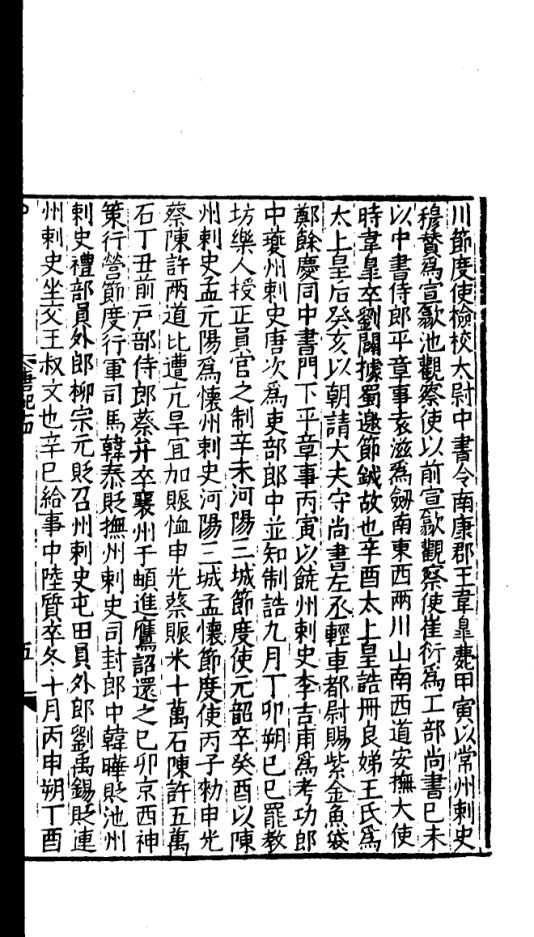 川節度使檢校太尉中書令南康郡王韋臯薨甲寅以常州刺史
穆贊爲宣歙池觀察使以前宣歙觀察使崔衍爲工部尚書己未
以中書侍郎平章事袁滋爲劒南東西兩川山南西道安撫大使
時韋臯卒劉闢據蜀邀節鉞故也辛酉太上皇誥冊良娣王氏爲
太上皇后癸亥以朝請大夫守尚書左丞輕車都尉賜紫金魚袋
鄭餘慶同中書門下平章事丙寅以饒州刺史李吉甫爲考功郎
中夔州刺史唐次爲吏部郎中並知制誥九月丁卯朔己巳罷教
坊樂人授正員官之制辛未河陽三城節度使元韶卒癸酉以陳
州刺史孟元陽爲懷州刺史河陽三城孟懷節度使丙子勑申光
蔡陳許兩道比遭亢旱宜加賑恤申光蔡賑米十萬石陳許五萬
石丁丑前戸部侍郎蔡弁卒襄州于頔進鷹詔還之己卯京西神
策行營節度行軍司馬韓泰貶撫州刺史司封郎中韓曄貶池州
刺史禮部員外郎柳宗元貶召州刺史屯田員外郎劉禹錫貶連
州刺史坐交王叔文也辛巳給事中陸質卒冬十月丙申朔丁酉
五